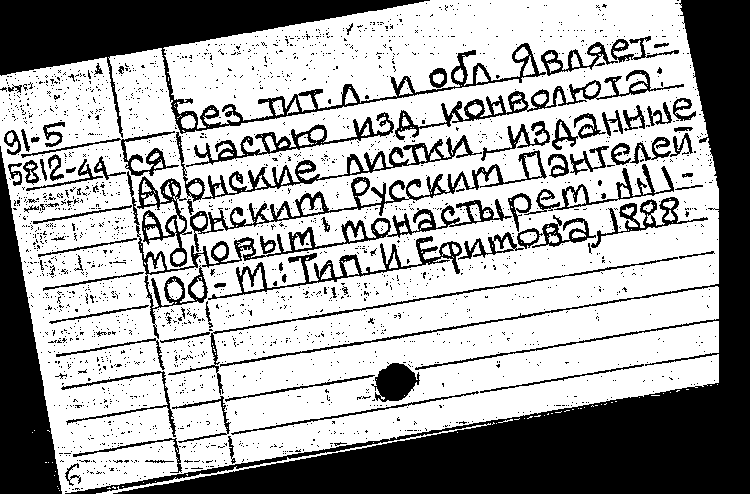 Без тит.л. и обл. Являет-
91-5
5812-44
ся частью изд. конволюта:
Афонские листки, изданные
Афонским Русским Пантелей-
моновым монастырем: NN1-
100.- М.: Тип. И. Ефимова, 1888.
6